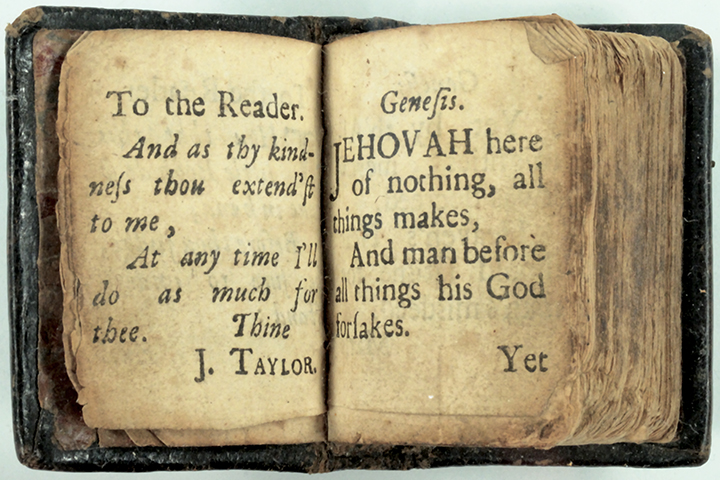 To the Reader.
And as thy kind-
neſs thou extend'ſt
to me,
At any time I'll
do as much for
thee. Thine
J. TAYLOR.
Geneſis.
JEHOVAH here
of nothing, all
things makes,
And man before
all things his God
forſakes.
Yet